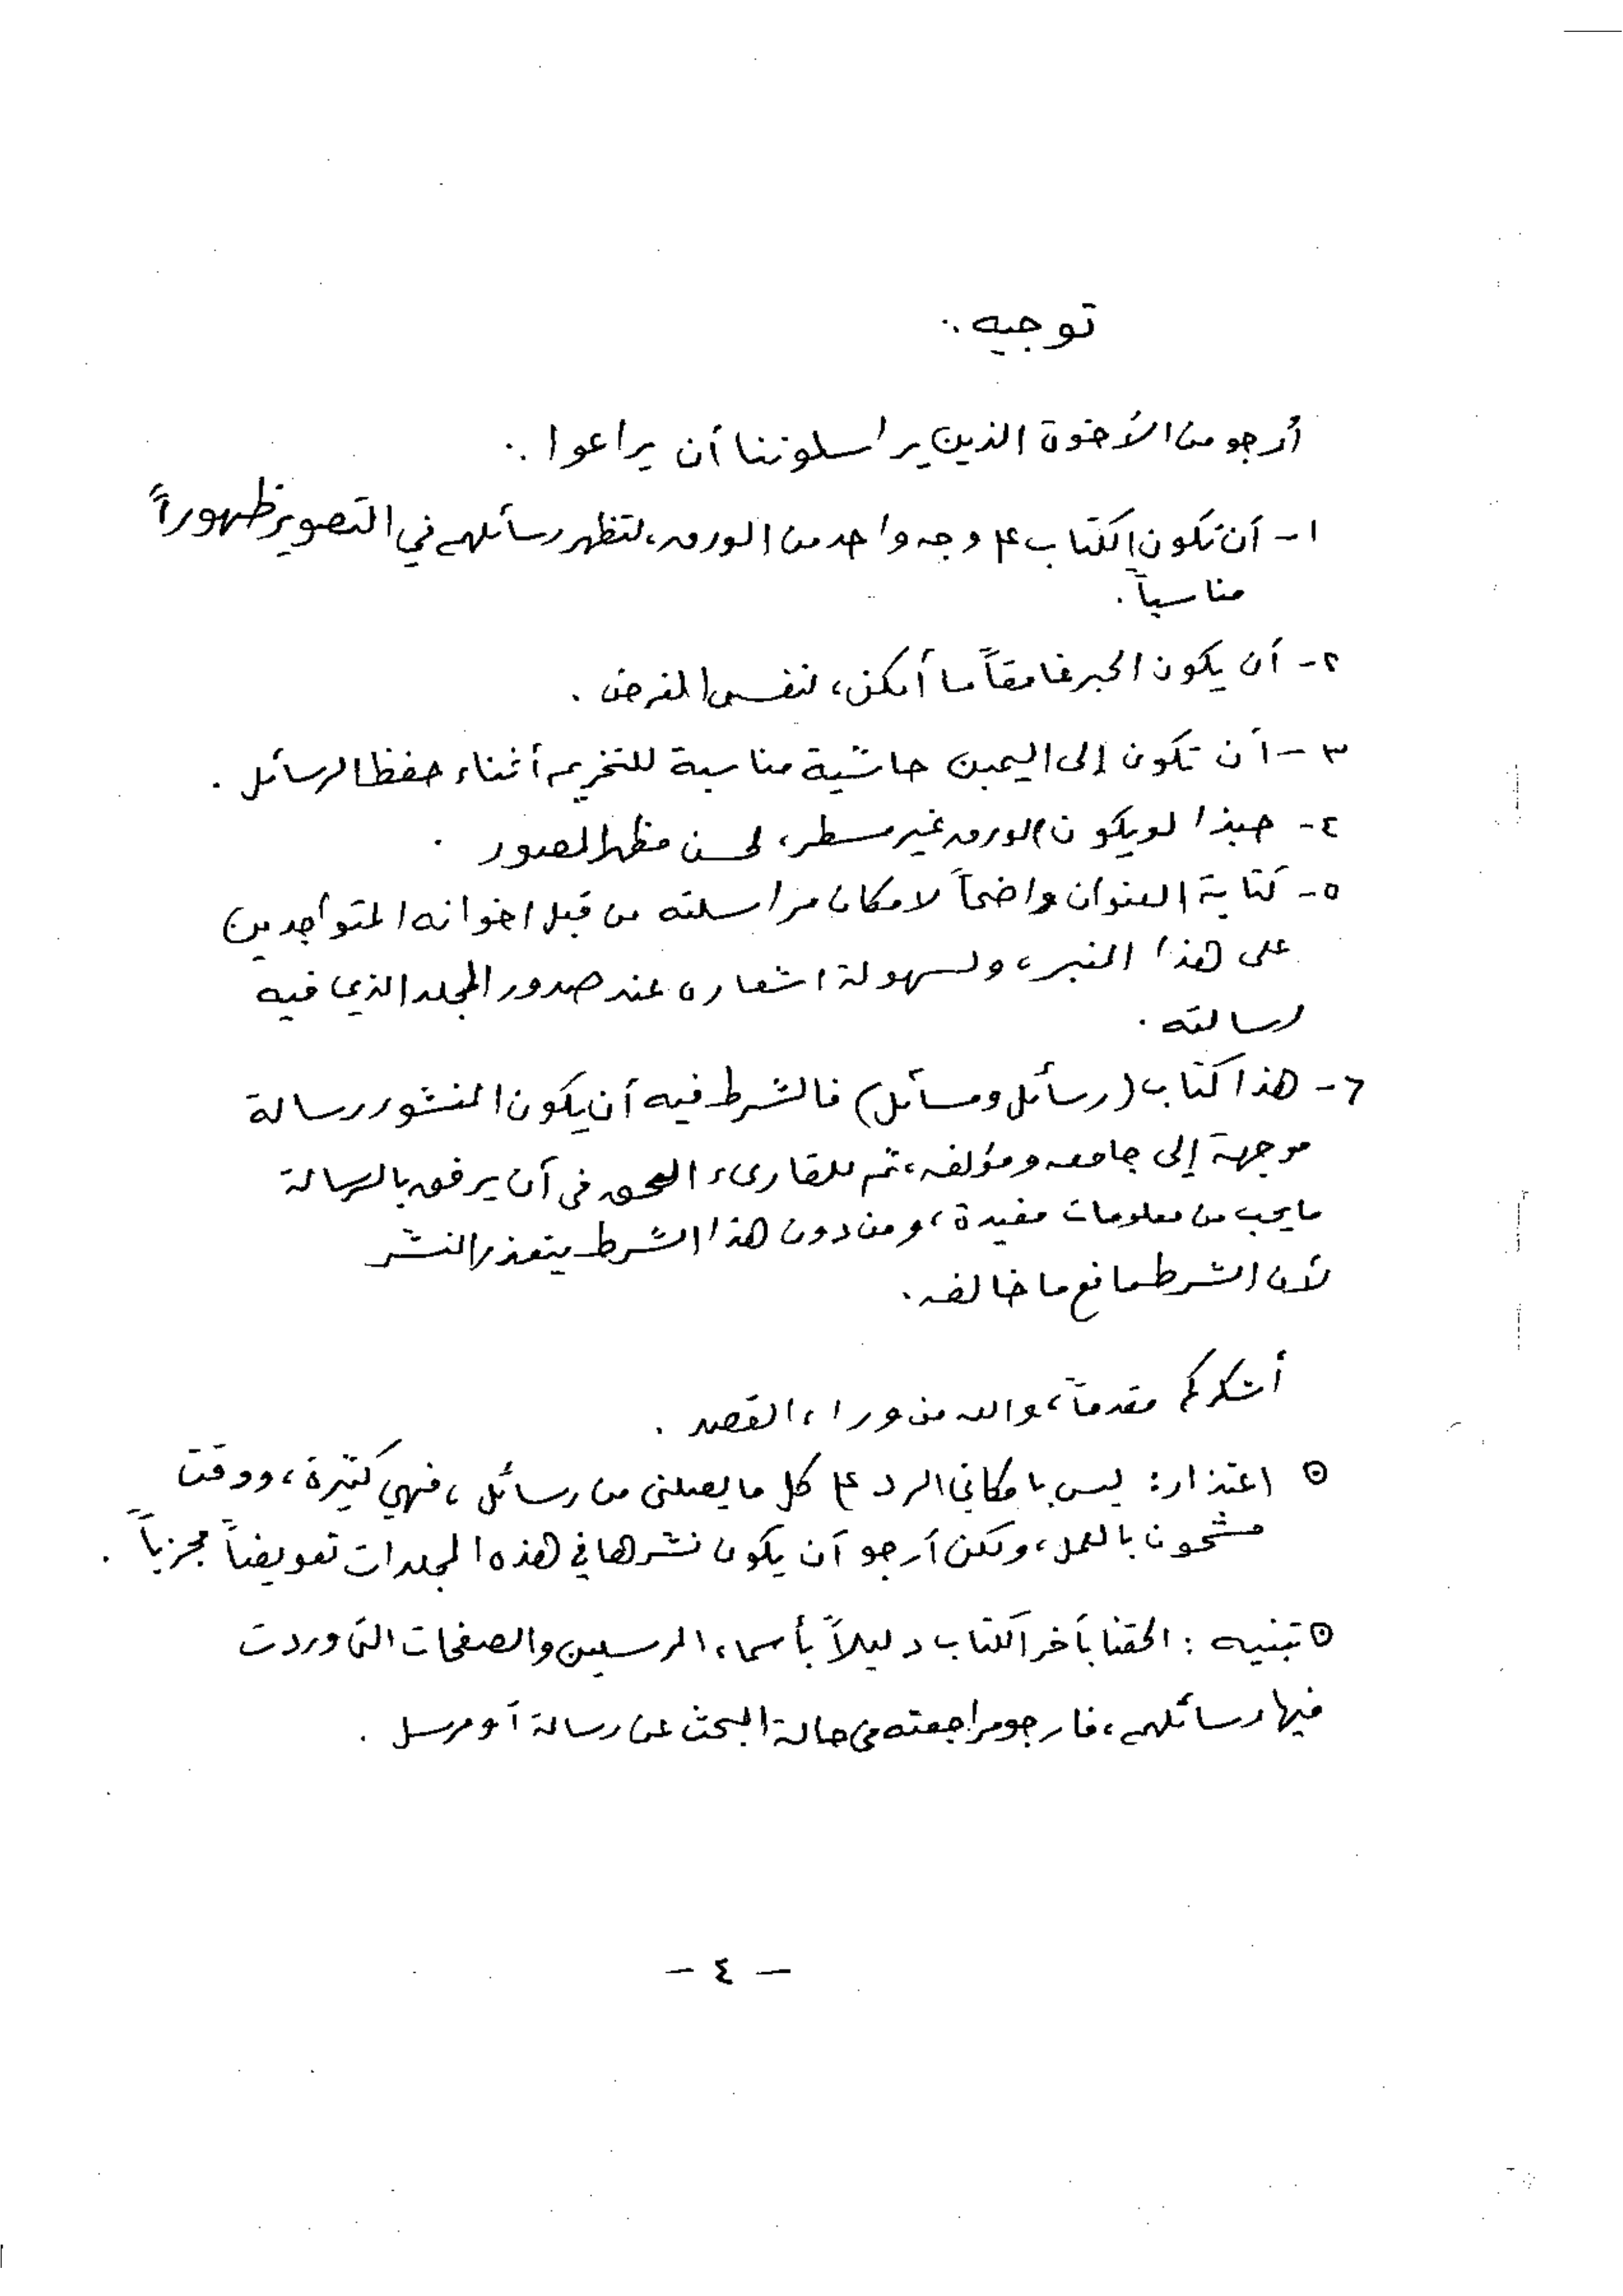 توجيه :
أرجو من الأخوة الذين يراسلوننا أن يراعوا :
١- أن تكون الكتابة على وجه واحد من الورق، لتظهر رسائلهم في التصوير ظهوراً
مناسباً .
٢- أن يكون الحبر غامقاً ما أمكن، لنفس الغرض .
٣- أن تكون إلى اليمين حاشية مناسبة للتخريم أثناء حفظ الرسائل .
٤- حبذا لو يكون الورق غير مسطر، لحسن مظهر المصور .
٥- كتابة العنوان واضحاً لامكان مراسلته من قبل اخوانه المتواجدين
على هذا المنبر، ولسهولة اشعاره عند صدور المجلد الذي فيه
رسالته .
٦- هذا كتاب (رسائل ومسائل) فالشرط فيه أن يكون المنشور رسالة
موجهة إلى جامعه ومؤلفه، ثم للقارىء الحق في أن يرفق بالرسالة
مايحب من معلومات مفيدة، ومن دون هذا الشرط يتعذر النشر
لأن الشرط مانع ما خالفه .
أشكركم مقدماً، والله من وراء القصد .
⊙ اعتذار: ليس بامكاني الرد على كل ما يصلني من رسائل، فهي كثيرة، ووقت
مشحون بالعمل، ولكن أرجو أن يكون نشرها في هذه المجلدات تعويضاً مجزياً .
⊙ تبنيه : الحقنا بأخر الكتاب دليلاً بأسماء المرسلين والصفحات التي وردت
فيها رسائلهم، فارجو مراجعته في حالة البحث عن رسالة أو مرسل .
- ٤ -